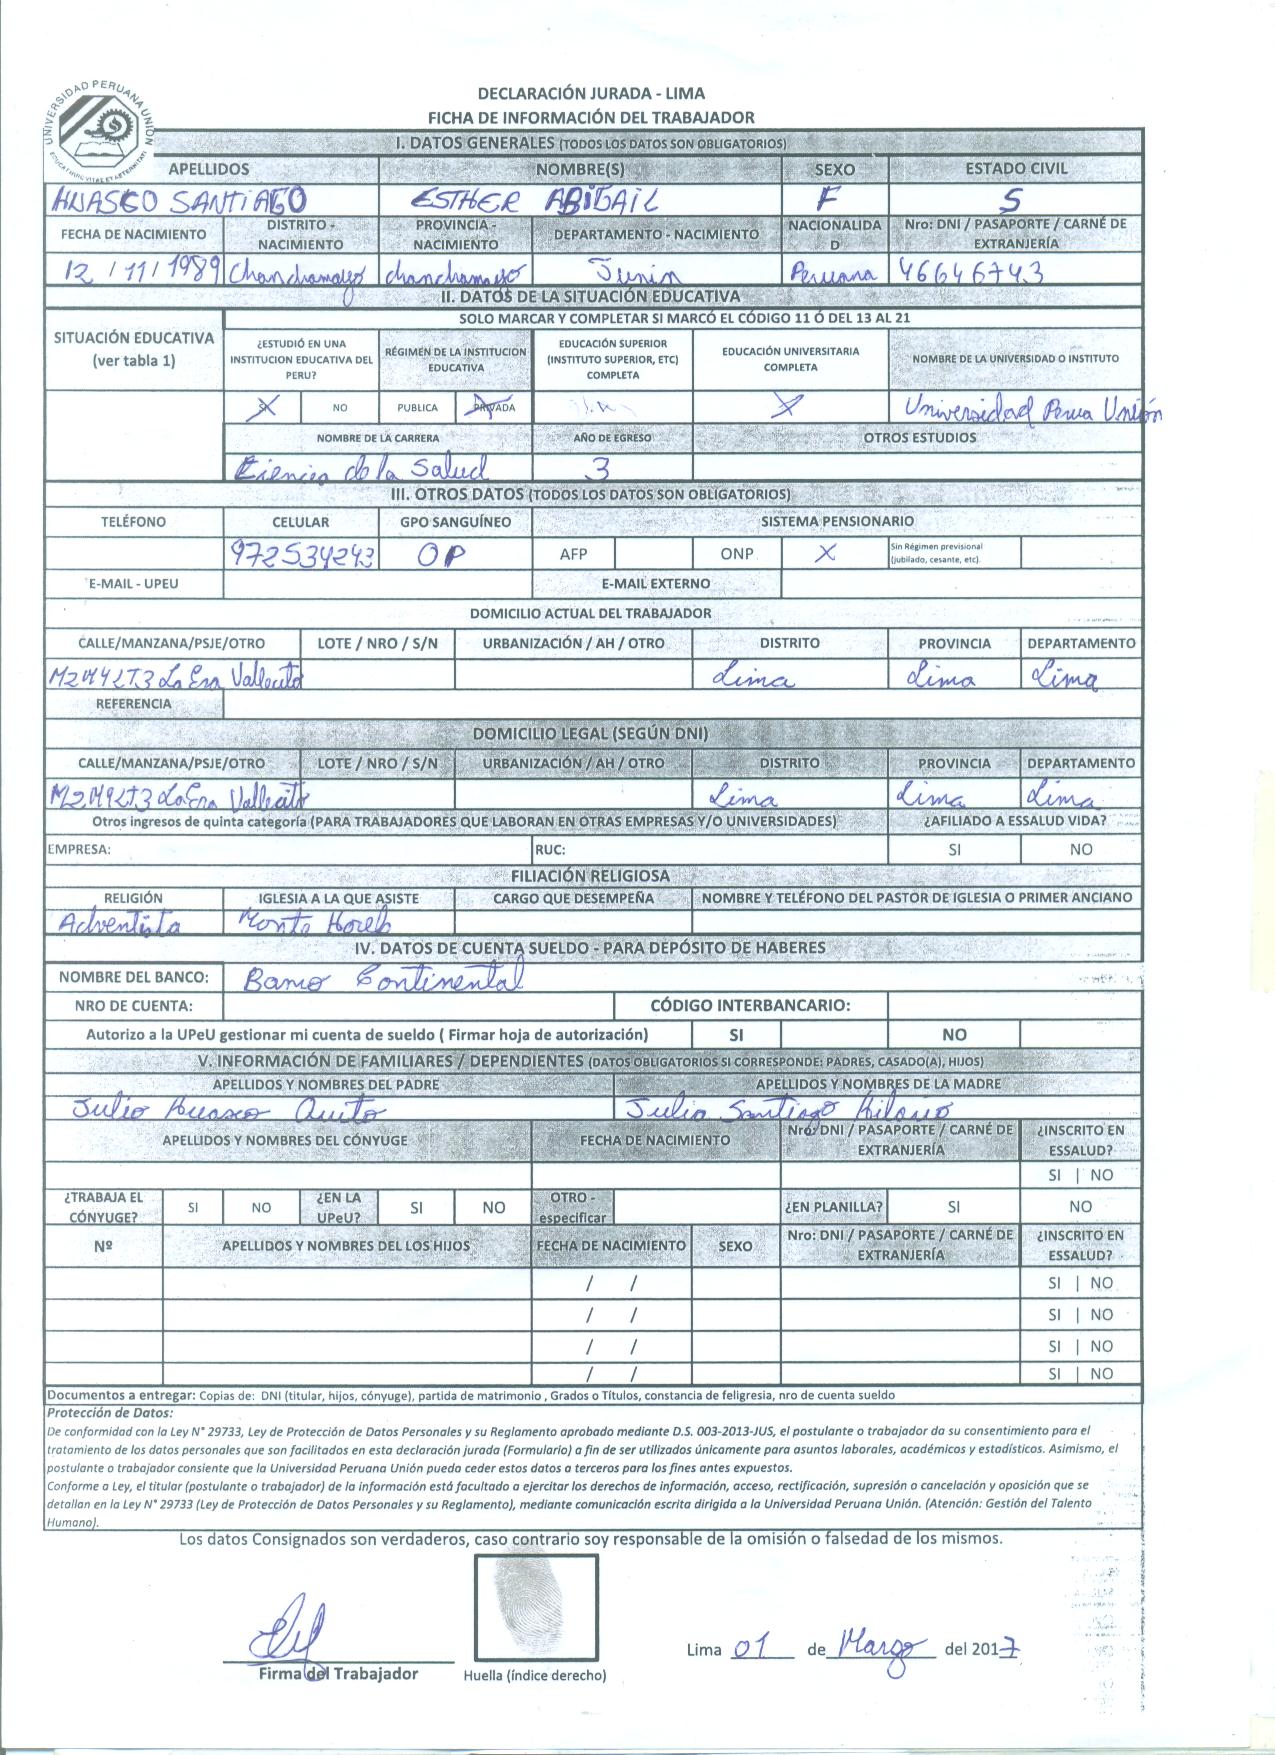 UNIVERSIDAD PERUANA UNION
DECLARACIÓN JURADA - LIMA
FICHA DE INFORMACIÓN DEL TRABAJADOR
I. DATOS GENERALES (TODOS LOS DATOS SON OBLIGATORIOS)
APELLIDOS NOMBRE(S) SEXO ESTADO CIVIL
HUASCO SANTIAGO ESTHER ABIGAIL F S
FECHA DE NACIMIENTO DISTRITO - NACIMIENTO PROVINCIA - NACIMIENTO DEPARTAMENTO - NACIMIENTO NACIONALIDAD Nro: DNI / PASAPORTE / CARNÉ DE EXTRANJERÍA
12 / 11 / 1989 Chanchamayo chanchamayo Junin Peruana 46646743
II. DATOS DE LA SITUACIÓN EDUCATIVA
SOLO MARCAR Y COMPLETAR SI MARCÓ EL CÓDIGO 11 Ó DEL 13 AL 21
SITUACIÓN EDUCATIVA (ver tabla 1) ¿ESTUDIÓ EN UNA INSTITUCION EDUCATIVA DEL PERU? RÉGIMEN DE LA INSTITUCION EDUCATIVA EDUCACIÓN SUPERIOR (INSTITUTO SUPERIOR, ETC) COMPLETA EDUCACIÓN UNIVERSITARIA COMPLETA NOMBRE DE LA UNIVERSIDAD O INSTITUTO
SI X NO PUBLICA PRIVADA X X Universidad Perua Unión
NOMBRE DE LA CARRERA AÑO DE EGRESO OTROS ESTUDIOS
Ciencia de la Salud 3
III. OTROS DATOS (TODOS LOS DATOS SON OBLIGATORIOS)
TELÉFONO CELULAR GPO SANGUÍNEO SISTEMA PENSIONARIO
972534243 OP AFP ONP X Sin Régimen previsional (jubilado, cesante, etc).
E-MAIL - UPEU E-MAIL EXTERNO
DOMICILIO ACTUAL DEL TRABAJADOR
CALLE/MANZANA/PSJE/OTRO LOTE / NRO / S/N URBANIZACIÓN / AH / OTRO DISTRITO PROVINCIA DEPARTAMENTO
La Era Vallecito Lima Lima Lima
REFERENCIA
DOMICILIO LEGAL (SEGÚN DNI)
CALLE/MANZANA/PSJE/OTRO LOTE / NRO / S/N URBANIZACIÓN / AH / OTRO DISTRITO PROVINCIA DEPARTAMENTO
La Era Vallecito Lima Lima Lima
Otros ingresos de quinta categoría (PARA TRABAJADORES QUE LABORAN EN OTRAS EMPRESAS Y/O UNIVERSIDADES) ¿AFILIADO A ESSALUD VIDA?
EMPRESA: RUC: SI NO
FILIACIÓN RELIGIOSA
RELIGIÓN IGLESIA A LA QUE ASISTE CARGO QUE DESEMPEÑA NOMBRE Y TELÉFONO DEL PASTOR DE IGLESIA O PRIMER ANCIANO
Adventista Monte Horeb
IV. DATOS DE CUENTA SUELDO - PARA DEPÓSITO DE HABERES
NOMBRE DEL BANCO: Banco Continental
NRO DE CUENTA: CÓDIGO INTERBANCARIO:
Autorizo a la UPeU gestionar mi cuenta de sueldo ( Firmar hoja de autorización) SI NO
V. INFORMACIÓN DE FAMILIARES / DEPENDIENTES (DATOS OBLIGATORIOS SI CORRESPONDE: PADRES, CASADO(A), HIJOS)
APELLIDOS Y NOMBRES DEL PADRE APELLIDOS Y NOMBRES DE LA MADRE
Julio Huasco Quito Julia Santiago Hilario
APELLIDOS Y NOMBRES DEL CÓNYUGE FECHA DE NACIMIENTO Nro: DNI / PASAPORTE / CARNÉ DE EXTRANJERÍA ¿INSCRITO EN ESSALUD?
SI | NO
¿TRABAJA EL CÓNYUGE? SI NO ¿EN LA UPeU? SI NO OTRO - especificar ¿EN PLANILLA? SI NO
Nº APELLIDOS Y NOMBRES DEL LOS HIJOS FECHA DE NACIMIENTO SEXO Nro: DNI / PASAPORTE / CARNÉ DE EXTRANJERÍA ¿INSCRITO EN ESSALUD?
/ / SI | NO
/ / SI | NO
/ / SI | NO
/ / SI | NO
Documentos a entregar: Copias de: DNI (titular, hijos, cónyuge), partida de matrimonio , Grados o Títulos, constancia de feligresia, nro de cuenta sueldo
Protección de Datos:
De conformidad con la Ley N° 29733, Ley de Protección de Datos Personales y su Reglamento aprobado mediante D.S. 003-2013-JUS, el postulante o trabajador da su consentimiento para el
tratamiento de los datos personales que son facilitados en esta declaración jurada (Formulario) a fin de ser utilizados únicamente para asuntos laborales, académicos y estadísticos. Asimismo, el
postulante o trabajador consiente que la Universidad Peruana Unión pueda ceder estos datos a terceros para los fines antes expuestos.
Conforme a Ley, el titular (postulante o trabajador) de la información está facultado a ejercitar los derechos de información, acceso, rectificación, supresión o cancelación y oposición que se
detallan en la Ley N° 29733 (Ley de Protección de Datos Personales y su Reglamento), mediante comunicación escrita dirigida a la Universidad Peruana Unión. (Atención: Gestión del Talento
Humano).
Los datos Consignados son verdaderos, caso contrario soy responsable de la omisión o falsedad de los mismos.
Lima 01 de Marzo del 2017
Firma del Trabajador Huella (índice derecho)